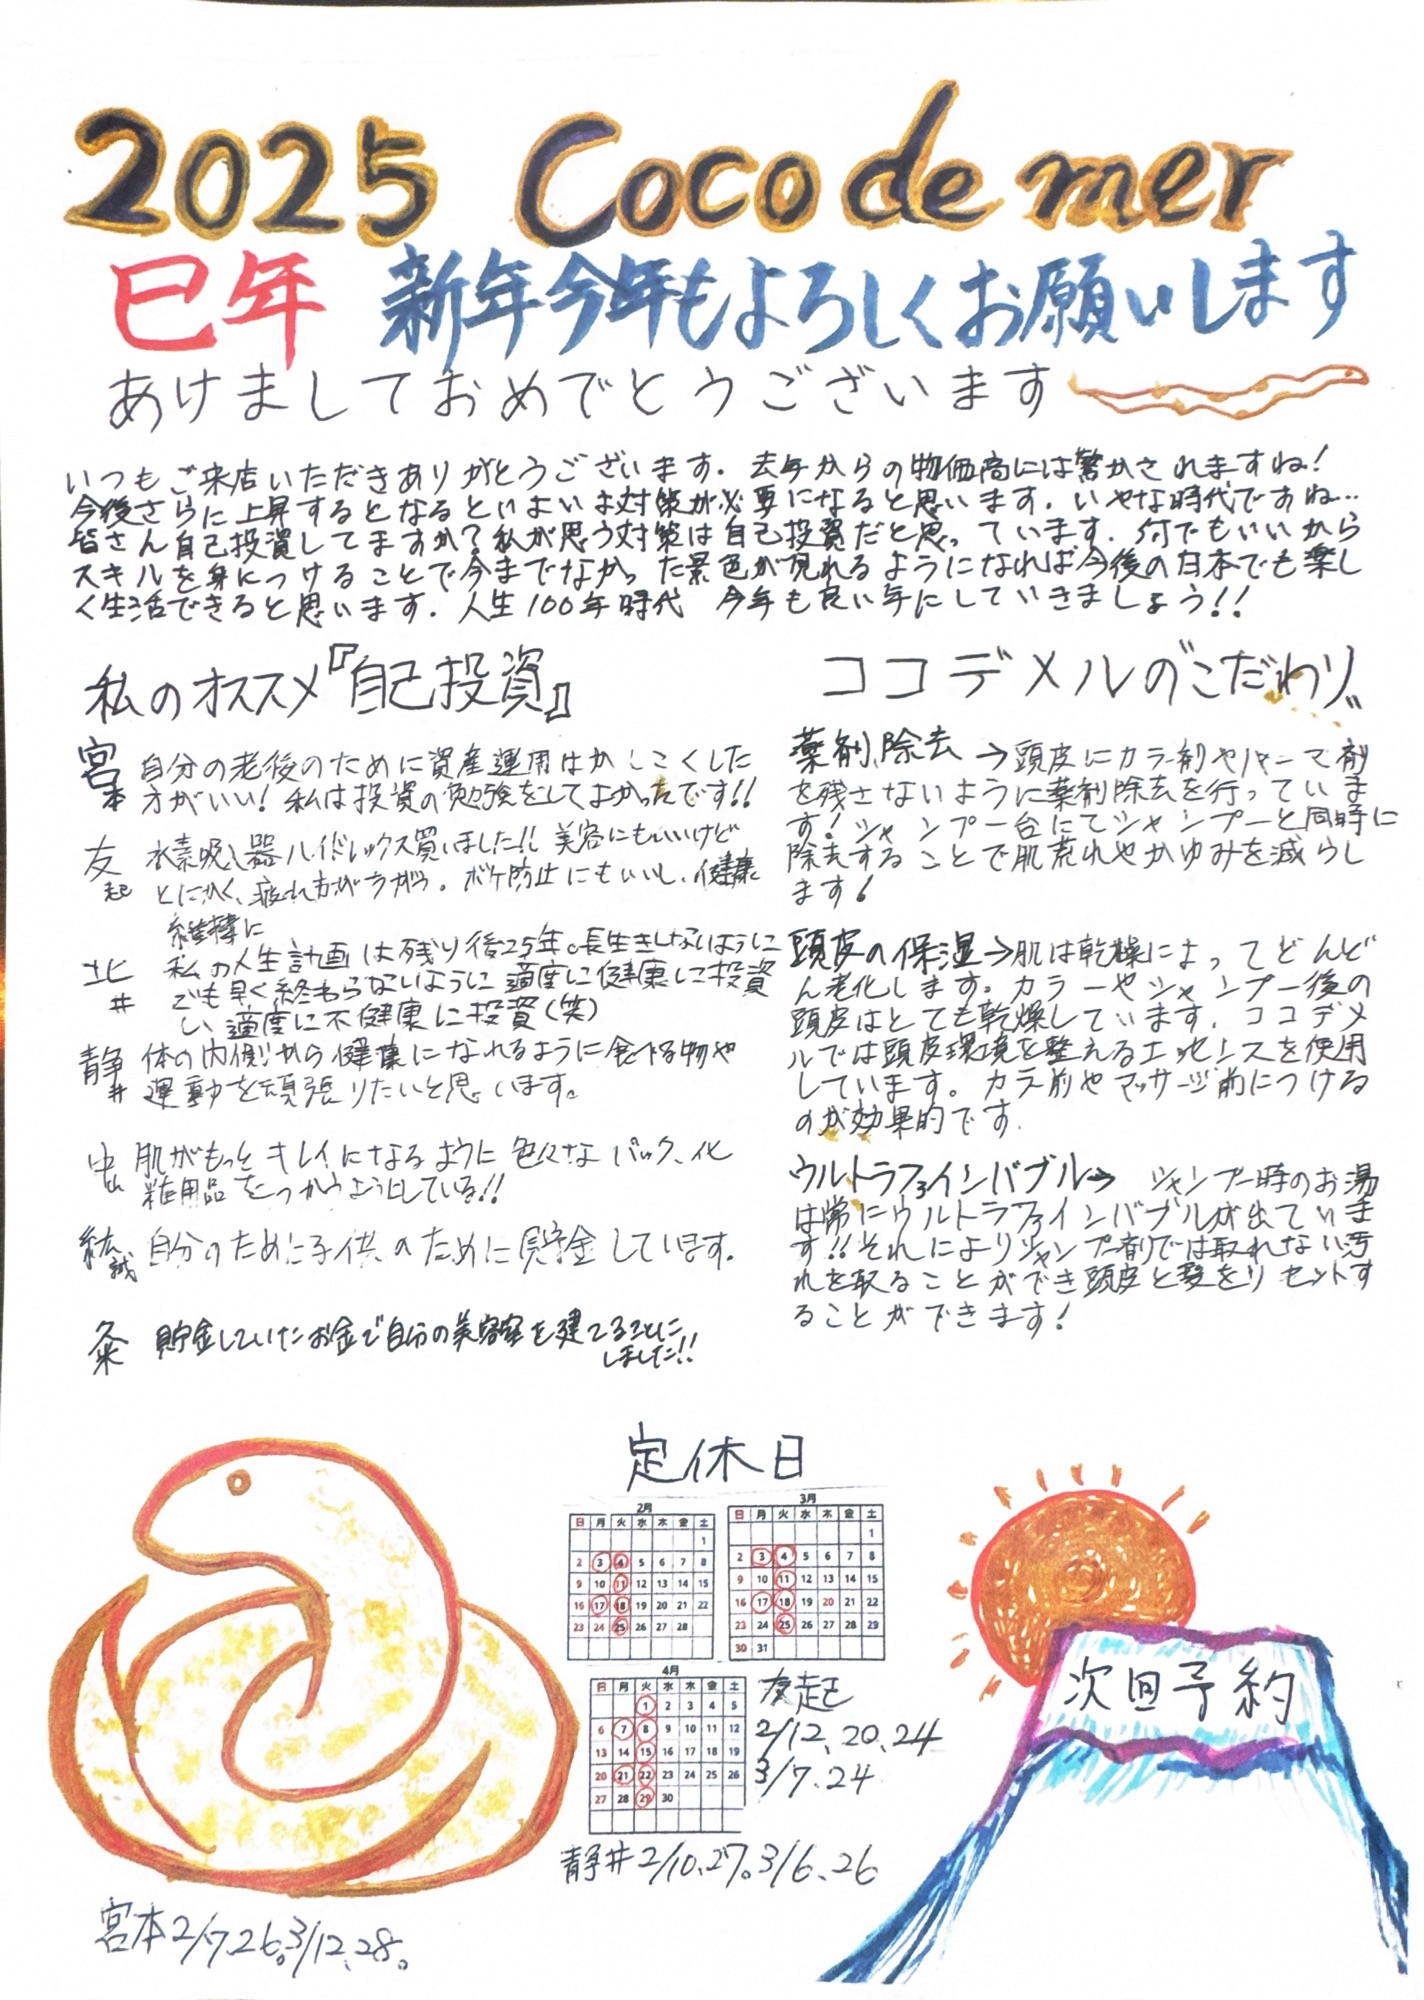 2025 Coco de mer
巳年 新年今年もよろしくお願いします
あけましておめでとうございます
いつもご来店いただきありがとうございます。去年からの物価高には驚かされますね!
今後さらに上昇するとなるといよいよ対策が必要になると思います。いやな時代ですね…
皆さん自己投資してますか?私が思う対策は自己投資だと思っています。何でもいいから
スキルを身につけることで今までなかった景色が見れるようになれば今後の日本でも楽し
く生活できると思います。人生100年時代 今年も良い年にしていきましょう!!
私のオススメ『自己投資』
宮本 自分の老後のために資産運用はかしこくした
方がいい! 私は投資の勉強をしてよかったです!!
友起 水素吸入器ハイドレックス買いました!! 美容にもいいけど
とにかく、疲れ方がちがう。ボケ防止にもいいし、健康
維持に
北井 私の人生計画は残り後25年。長生きしないように
でも早く終わらないように適度に健康に投資
し、適度に不健康に投資(笑)
静井 体の内側から健康になれるように食べる物や
運動を頑張りたいと思います。
肌がもっとキレイになるように色々なパック、化
粧用品をつかうようにしている!!
紘誠 自分のために子供のために貯金しています。
粂 貯金していたお金で自分の美容室を建てることに
しました!!
ココデメルの"こだわり"
薬剤除去→頭皮にカラー剤やパーマ剤
を残さないように薬剤除去を行っていま
す!シャンプー台にてシャンプーと同時に
除去することで肌荒れやかゆみを減らし
ます!
頭皮の保湿→肌は乾燥によってどんど
ん老化します。カラーやシャンプー後の
頭皮はとても乾燥しています。ココデメ
ルでは頭皮環境を整えるエッセンスを使用
しています。カラー前やマッサージ前につける
のが効果的です。
ウルトラファインバブル→ シャンプー時のお湯
は常にウルトラファインバブルが出ていま
す!!それによりシャンプー剤では取れない汚
れを取ることができ頭皮と髪をリセットす
ることができます!
定休日
2月
日 月 火 水 木 金 土
1
2 3 4 5 6 7 8
9 10 11 12 13 14 15
16 17 18 19 20 21 22
23 24 25 26 27 28
3月
日 月 火 水 木 金 土
1
2 3 4 5 6 7 8
9 10 11 12 13 14 15
16 17 18 19 20 21 22
23 24 25 26 27 28 29
30 31
4月
日 月 火 水 木 金 土
1 2 3 4 5
6 7 8 9 10 11 12
13 14 15 16 17 18 19
20 21 22 23 24 25 26
27 28 29 30
友起
2/12、20、24
3/7、24
静井2/10、27。3/6、26
宮本2/7、26。3/12、28。
次回予約